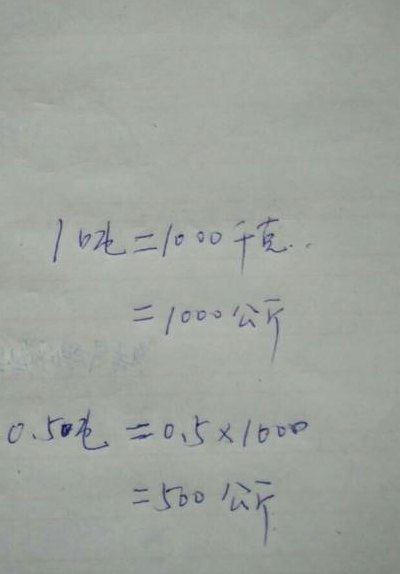 1吨=1000千克..
=1000公斤
0.5吨=0.5×1000
=500公斤